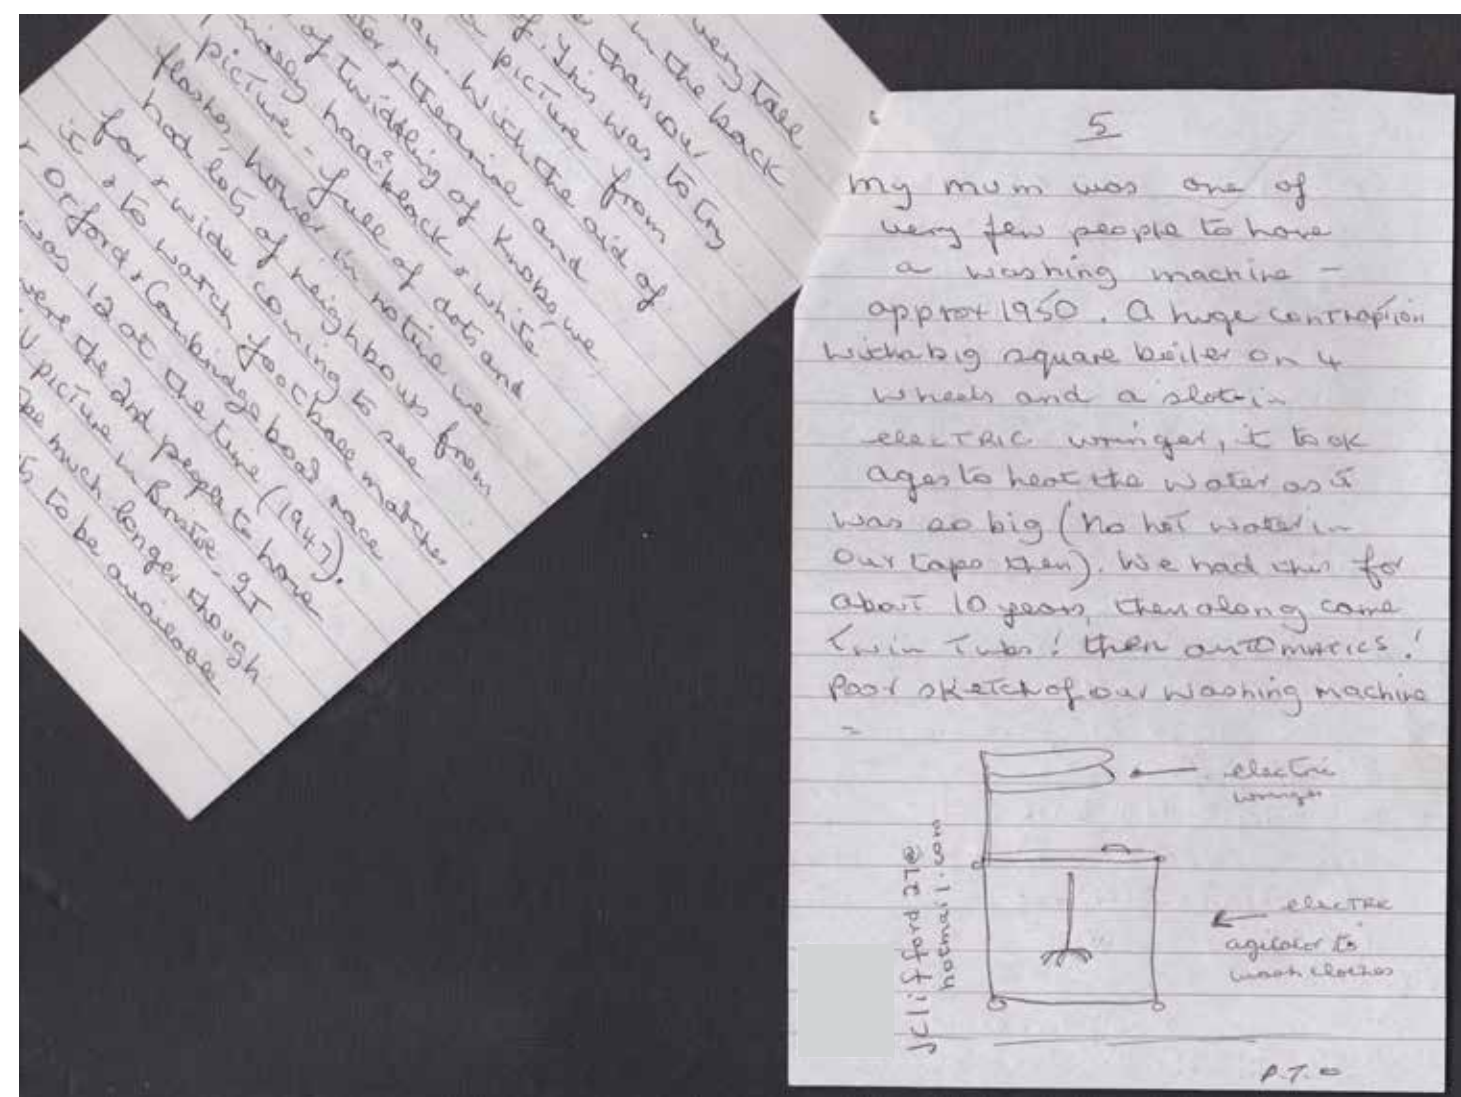 very tall
in the back
than our
This was to try
picture from
With the aid of
and
of twiddling of knobs we
had a black & white
picture - full of dots and
flashes, however in no time we
had lots of neighbours from
far & wide coming to see
it & to watch football matches
Oxford & Cambridge boat race
was 12 at the time (1947).
were the 2nd people to have
picture in
be much longer though
to be available
5
My mum was one of
very few people to have
a washing machine -
approx 1950. A huge contraption
with a big square boiler on 4
wheels and a slot-in
electric wringer, it took
ages to heat the water as it
was so big (no hot water in
our taps then). We had this for
about 10 years, then along came
twin tubs! then automatics!
Poor sketch of our washing machine
electric
wringer
electric
agitator to
wash clothes
jclifford27@
hotmail.com
P.T.O